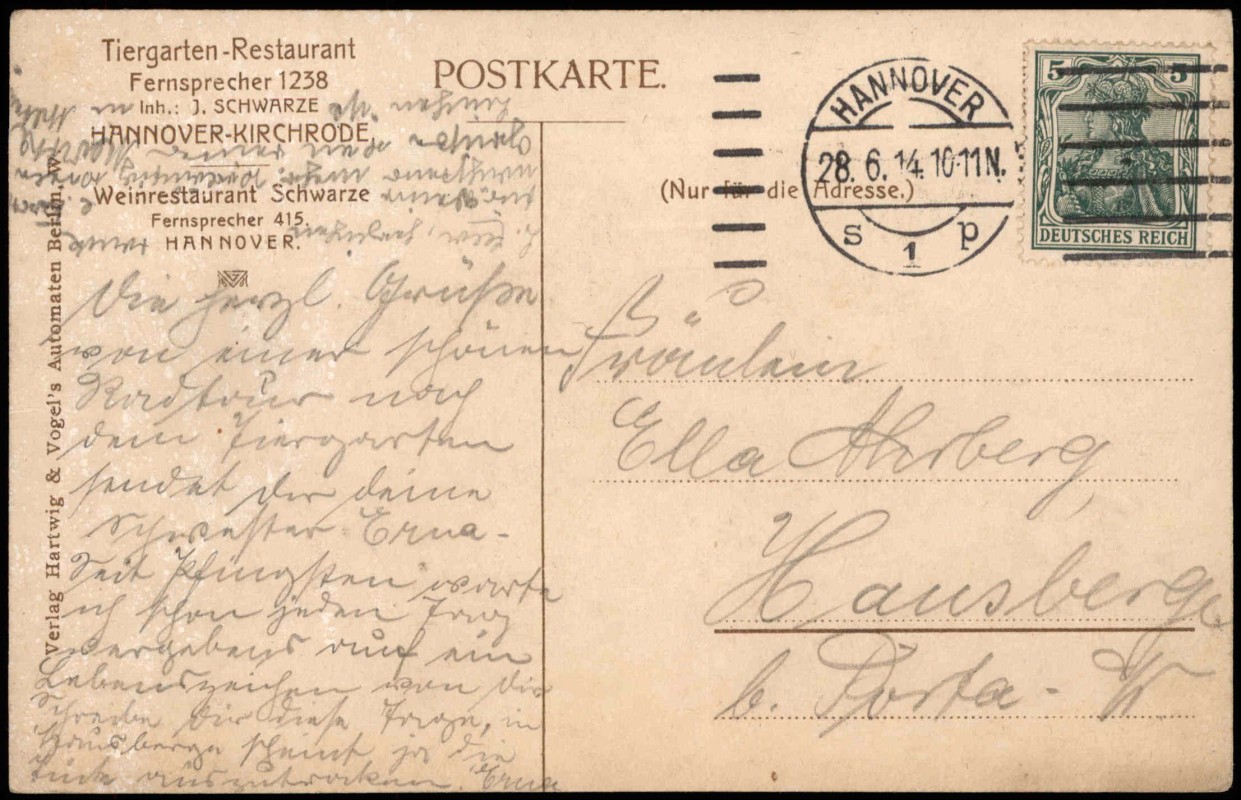 Tiergarten-Restaurant
Fernsprecher 1238
Inh.: J. SCHWARZE
HANNOVER-KIRCHRODE,
Weinrestaurant Schwarze
Fernsprecher 415.
HANNOVER.
POSTKARTE.
(Nur für die Adresse.)
HANNOVER
28. 6. 14. 10-11 N.
S 1 p
5 5
DEUTSCHES REICH
Verlag Hartwig & Vogel's Automaten Berlin, W.
Die herzl. Grüße
von einer schönen
Radtour nach
dem Tiergarten
sendet dir deine
Schwester Erna.
Seit Pfingsten warte
ich schon jeden Tag
vergebens auf ein
Lebenszeichen von dir
Schreibe für diese Frage, in
Hausberge scheint ja die
Tinte auszutrocken. Erna
Fräulein
Ella Ahrberg,
Hausberge
b. Porta - W